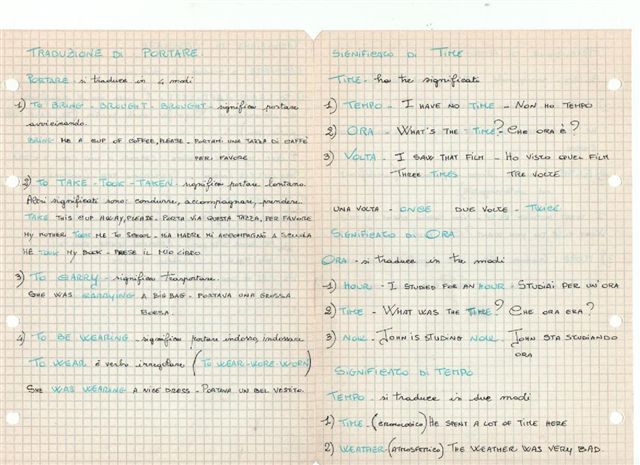 TRADUZIONE DI PORTARE
PORTARE si traduce in 4 modi
1) TO BRING - BROUGHT - BROUGHT - significa portare
avvicinando.
BRING ME A CUP OF COFFEE, PLEASE - PORTAMI UNA TAZZA DI CAFFÈ
PER FAVORE
2) TO TAKE - TOOK - TAKEN - significa portare lontano.
Altri significati sono: condurre, accompagnare, prendere.
TAKE THIS CUP AWAY, PLEASE - PORTA VIA QUESTA TAZZA, PER FAVORE
MY MOTHER TOOK ME TO SCHOOL - MIA MADRE MI ACCOMPAGNÒ A SCUOLA
HE TOOK MY BOOK - PRESE IL MIO LIBRO
3) TO CARRY - significa trasportare.
SHE WAS CARRYING A BIG BAG - PORTAVA UNA GROSSA
BORSA.
4) TO BE WEARING - significa portare indosso, indossare
TO WEAR è verbo irregolare (TO WEAR - WORE - WORN)
SHE WAS WEARING A NICE DRESS - PORTAVA UN BEL VESTITO.
SIGNIFICATO DI TIME
TIME - ha tre significati
1) TEMPO - I HAVE NO TIME - NON HO TEMPO
2) ORA - WHAT'S THE TIME? - CHE ORA È?
3) VOLTA - I SAW THAT FILM - HO VISTO QUEL FILM
THREE TIMES TRE VOLTE
UNA VOLTA - ONCE DUE VOLTE - TWICE
SIGNIFICATO DI ORA
ORA - si traduce in tre modi
1) HOUR - I STUDIED FOR AN HOUR - STUDIAI PER UN'ORA
2) TIME - WHAT WAS THE TIME? CHE ORA ERA?
3) NOW - JOHN IS STUDING NOW. JOHN STA STUDIANDO
ORA
SIGNIFICATO DI TEMPO
TEMPO - si traduce in due modi
1) TIME - (CRONOLOGICO) HE SPENT A LOT OF TIME HERE
2) WEATHER - (ATMOSFERICO) THE WEATHER WAS VERY BAD.